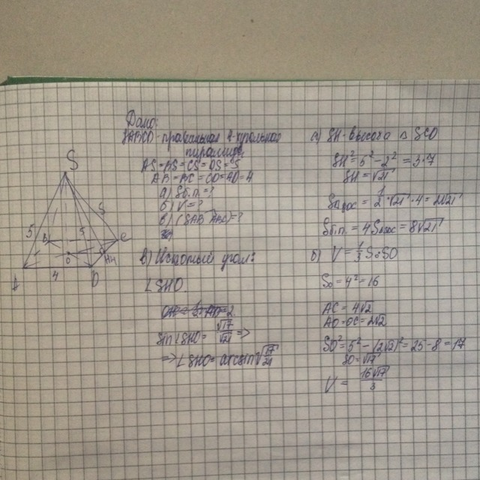 Дано:
SABCD - правильная 4-угольная
пирамида
AS=BS=CS=DS=5
AB=BC=CD=AD=4
а) Sб.п.=?
б) V=?
в) (SAB ABC)=?
в) Искомый угол:
∠SHO
OH = 1/2 AD = 2
sin∠SHO = √17/√21 =>
=> ∠SHO = arcsin√17/21
а) SH - высота △ SCD
SH² = 5² - 2² = 3·7
SH = √21
Sбок = 1/2 · √21 · 4 = 2√21
Sб.п. = 4Sбок = 8√21
б) V = 1/3 S₀SO
S₀ = 4² = 16
AC = 4√2
AO = OC = 2√2
SO² = 5² - (2√2)² = 25 - 8 = 17
SO = √17
V = 16√17/3
S
5
5
5
B
C
O
H
A
4
D
4